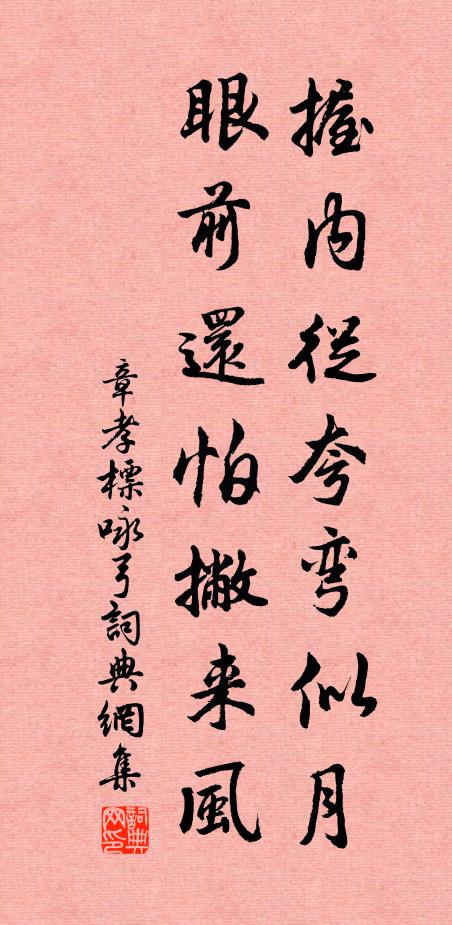 握内從夸彎似月
眼前還怕撇来風
章孝標咏弓詞典網集
詞典网印